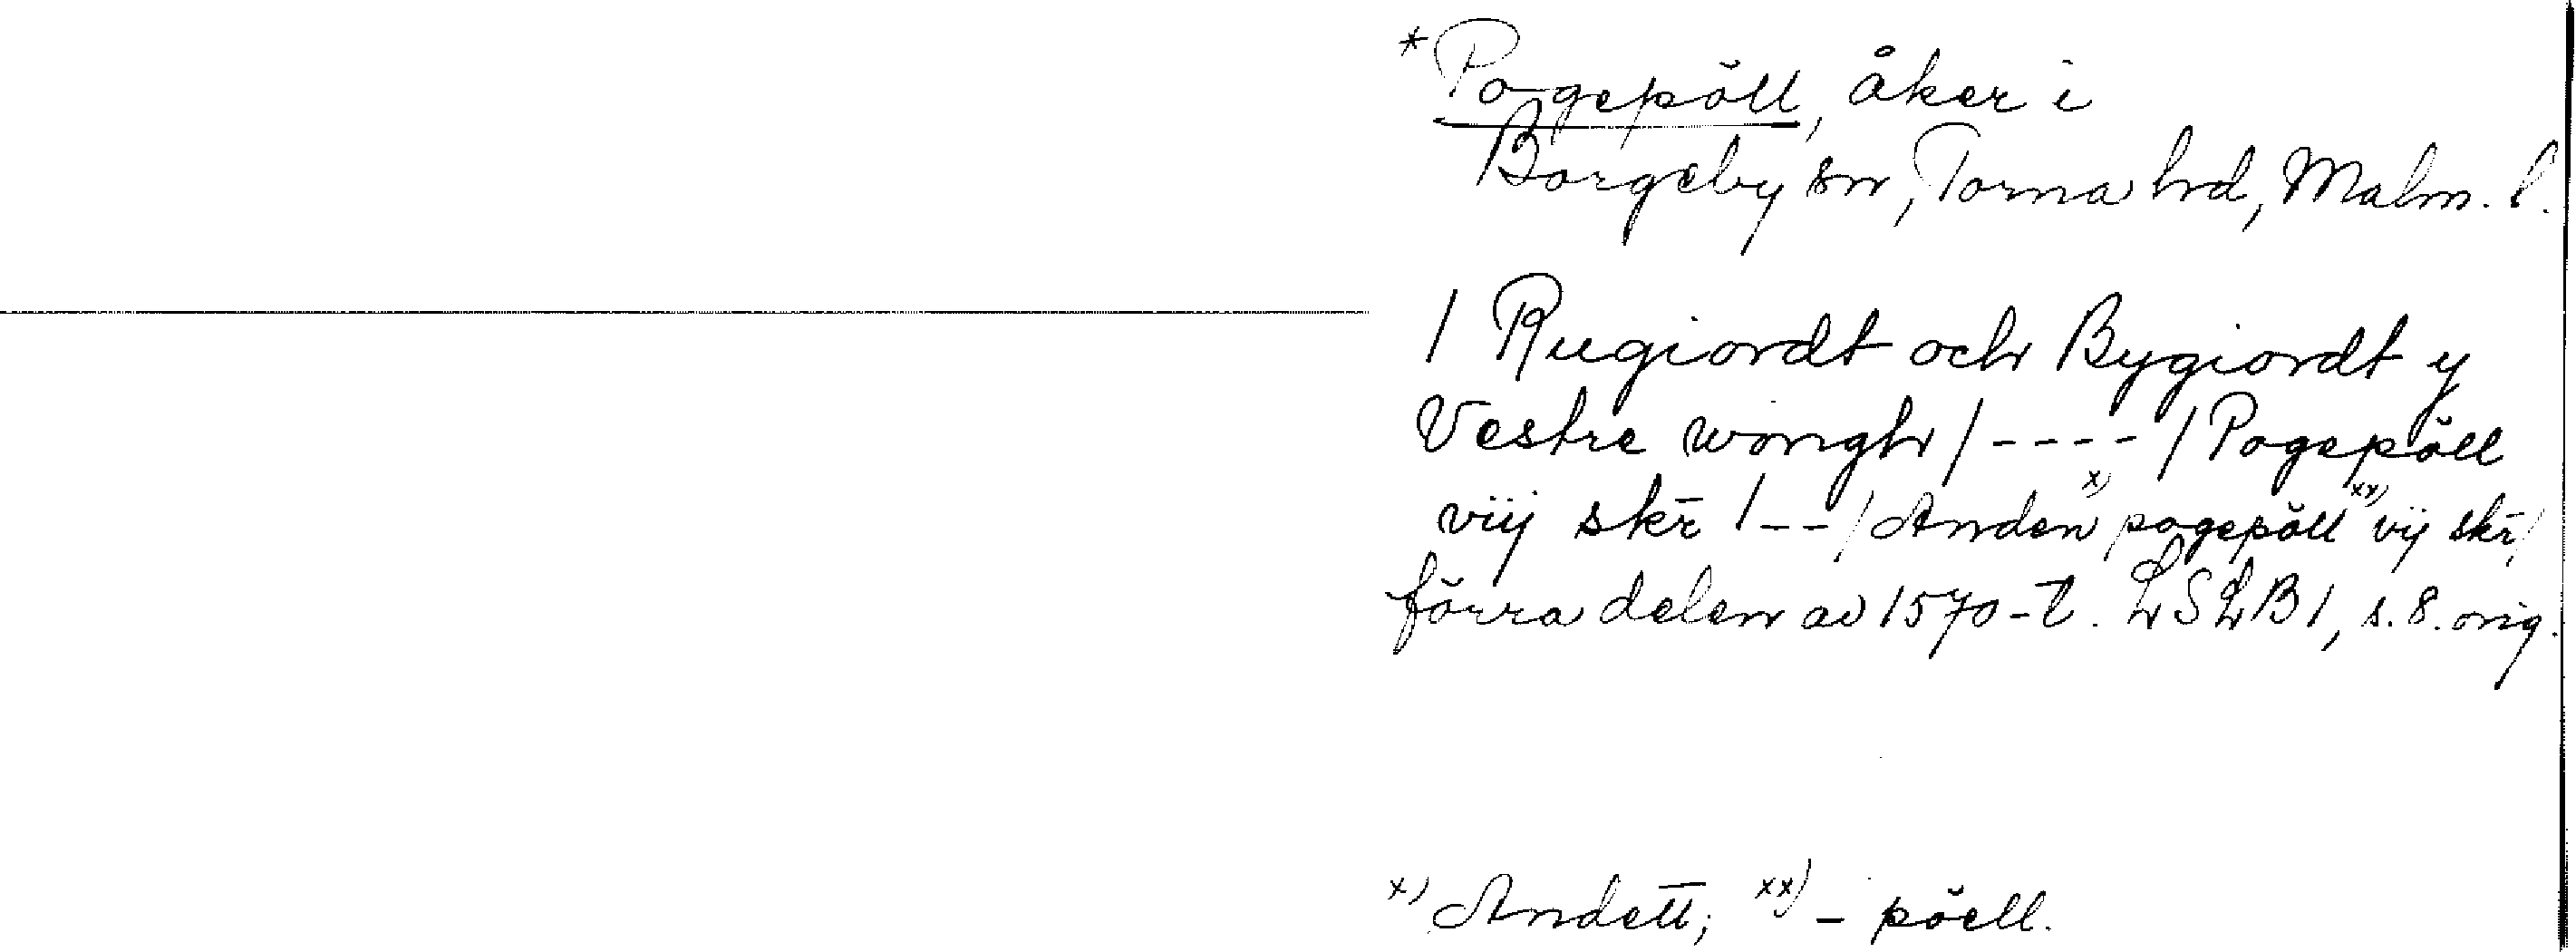 * Pogepöll, åker i
Borgeby sn, Torna hd, Malm. l.
/ Rugiordt och Bygiordt y
Vestre wongh / - - - - / Pogepöll
viij skr̄ / - - / Anden x) pogepöll xx) vij skr̄ /
förra delen av 1570-t. LSLB 1, s. 8. orig.
x) Andett; xx) - pöell.